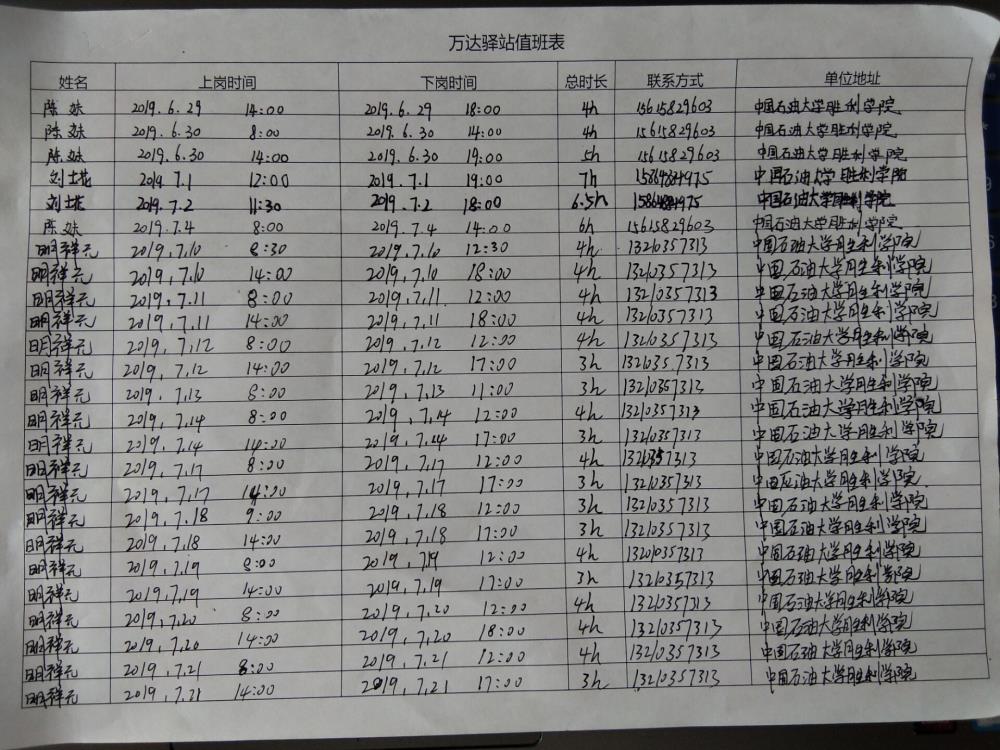 万达驿站值班表
姓名 上岗时间 下岗时间 总时长 联系方式 单位地址
陈妹 2019.6.29 14:00 2019.6.29 18:00 4h 15615829603 中国石油大学胜利学院
陈妹 2019.6.30 8:00 2019.6.30 14:00 4h 15615829603 中国石油大学胜利学院
陈妹 2019.6.30 14:00 2019.6.30 19:00 5h 15615829603 中国石油大学胜利学院
刘士花 2019 7.1 12:00 2019.7.1 19:00 7h 中国石油大学胜利学院
刘士花 2019.7.2 11:30 2019.7.2 18:00 6.5h 中国石油大学胜利学院
陈妹 2019.7.4 8:00 2019.7.4 14:00 6h 15615829603 中国石油大学胜利学院
明祥元 2019,7,10 8:30 2019,7,10 12:30 4h 13210357313 中国石油大学胜利学院
明祥元 2019,7,10 14:00 2019,7,10 18:00 4h 13210357313 中国石油大学胜利学院
明祥元 2019,7,11 8:00 2019,7,11 12:00 4h 13210357313 中国石油大学胜利学院
明祥元 2019,7,11 14:00 2019,7,11 18:00 4h 13210357313 中国石油大学胜利学院
明祥元 2019,7,12 8:00 2019,7,12 12:00 4h 13210357313 中国石油大学胜利学院
明祥元 2019,7,12 14:00 2019,7,12 17:00 3h 13210357313 中国石油大学胜利学院
明祥元 2019,7,13 8:00 2019,7,13 11:00 3h 13210357313 中国石油大学胜利学院
明祥元 2019,7,14 8:00 2019,7,14 12:00 4h 13210357313 中国石油大学胜利学院
明祥元 2019,7,14 14:00 2019,7,14 17:00 3h 13210357313 中国石油大学胜利学院
明祥元 2019,7,17 8:00 2019,7,17 12:00 4h 13210357313 中国石油大学胜利学院
明祥元 2019,7,17 14:00 2019,7,17 17:00 3h 13210357313 中国石油大学胜利学院
明祥元 2019,7,18 9:00 2019,7,18 12:00 3h 13210357313 中国石油大学胜利学院
明祥元 2019,7,18 14:00 2019,7,18 17:00 3h 13210357313 中国石油大学胜利学院
明祥元 2019,7,19 8:00 2019,7,19 12:00 4h 13210357313 中国石油大学胜利学院
明祥元 2019,7,19 14:00 2019,7,19 17:00 3h 13210357313 中国石油大学胜利学院
明祥元 2019,7,20 8:00 2019,7,20 12:00 4h 13210357313 中国石油大学胜利学院
明祥元 2019,7,20 14:00 2019,7,20 18:00 4h 13210357313 中国石油大学胜利学院
明祥元 2019,7,21 8:00 2019,7,21 12:00 4h 13210357313 中国石油大学胜利学院
明祥元 2019,7,21 14:00 2019,7,21 17:00 3h 13210357313 中国石油大学胜利学院